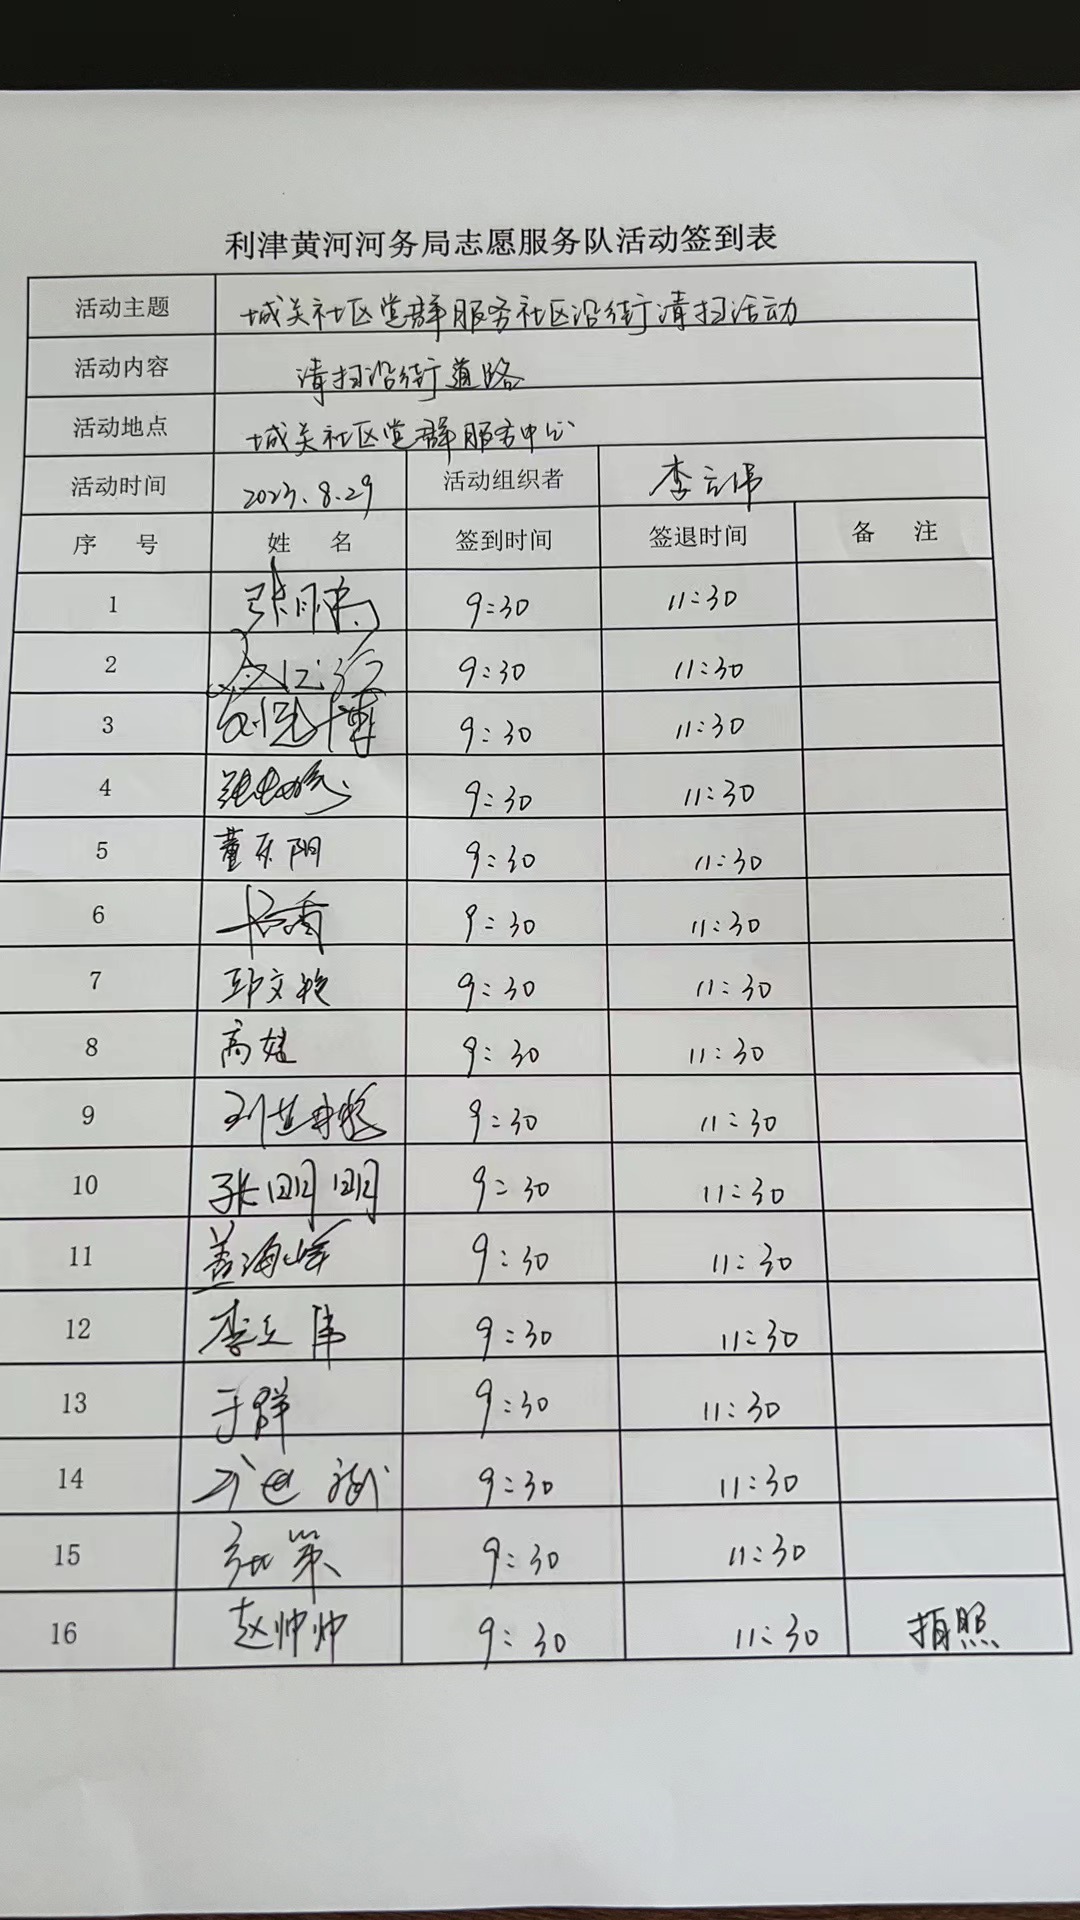 利津黄河河务局志愿服务队活动签到表
活动主题 城关社区党群服务社区沿街清扫活动
活动内容 清扫沿街道路
活动地点 城关社区党群服务中心
活动时间 2023.8.29 活动组织者 李立伟
序 号 姓 名 签到时间 签退时间 备 注
1 张 9:30 11:30
2 9:30 11:30
3 博 9:30 11:30
4 9:30 11:30
5 董东阳 9:30 11:30
6 9:30 11:30
7 邱文艳 9:30 11:30
8 高婕 9:30 11:30
9 9:30 11:30
10 张明明 9:30 11:30
11 盖海峰 9:30 11:30
12 李立伟 9:30 11:30
13 于群 9:30 11:30
14 9:30 11:30
15 策 9:30 11:30
16 赵帅帅 9:30 11:30 拍照